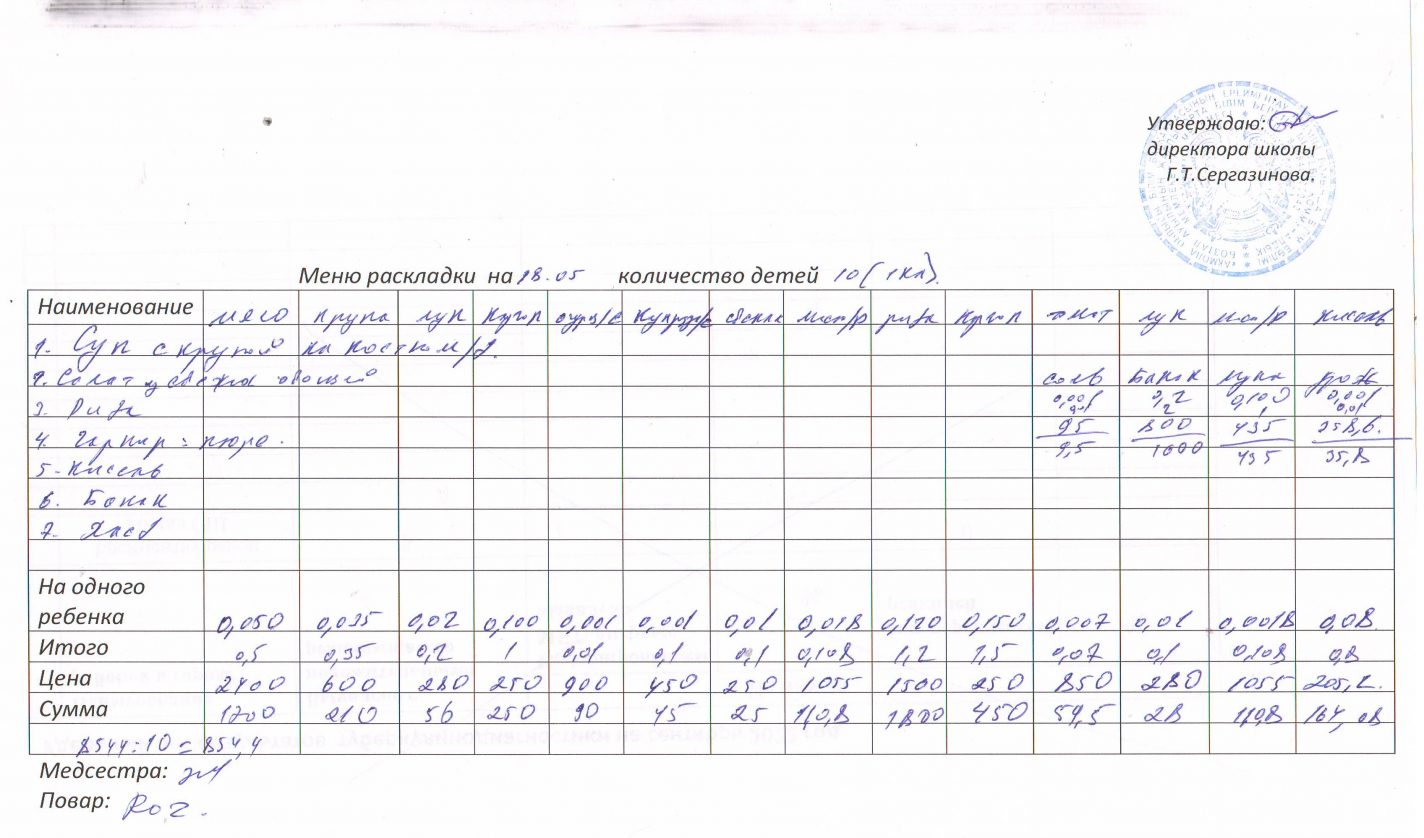 Утверждаю:
директора школы
Г.Т.Сергазинова.
Меню раскладки на 18.05 количество детей 10 (1кл).
Наименование мясо крупа лук картоп огурц/с свекла мас/р рыба картоп томат лук мас/р кисель
1. Суп с крупой на костном/б.
2. Салат из свежих овощей соль мука
0,001 0,2 0,100 0,001
3. Рыба 0,01 2 1 0,01
4. Гарнир: пюре. 95 800 435 358,6.
5. Кисель 9,5 1600 435 35,8
6. Банан
7. Хлеб
На одного
ребенка 0,050 0,035 0,02 0,100 0,001 0,001 0,01 0,018 0,120 0,150 0,007 0,01 0,0018 0,08
Итого 0,5 0,35 0,2 1 0,01 0,1 0,1 0,108 1,2 1,5 0,07 0,1 0,108 0,8
Цена 2400 600 280 250 900 450 250 1055 1500 250 850 280 1055 205,1.
Сумма 1200 210 56 250 90 45 25 110,8 1800 450 59,5 28 110,8 164,08
8544:10 = 854,4
Медсестра:
Повар: